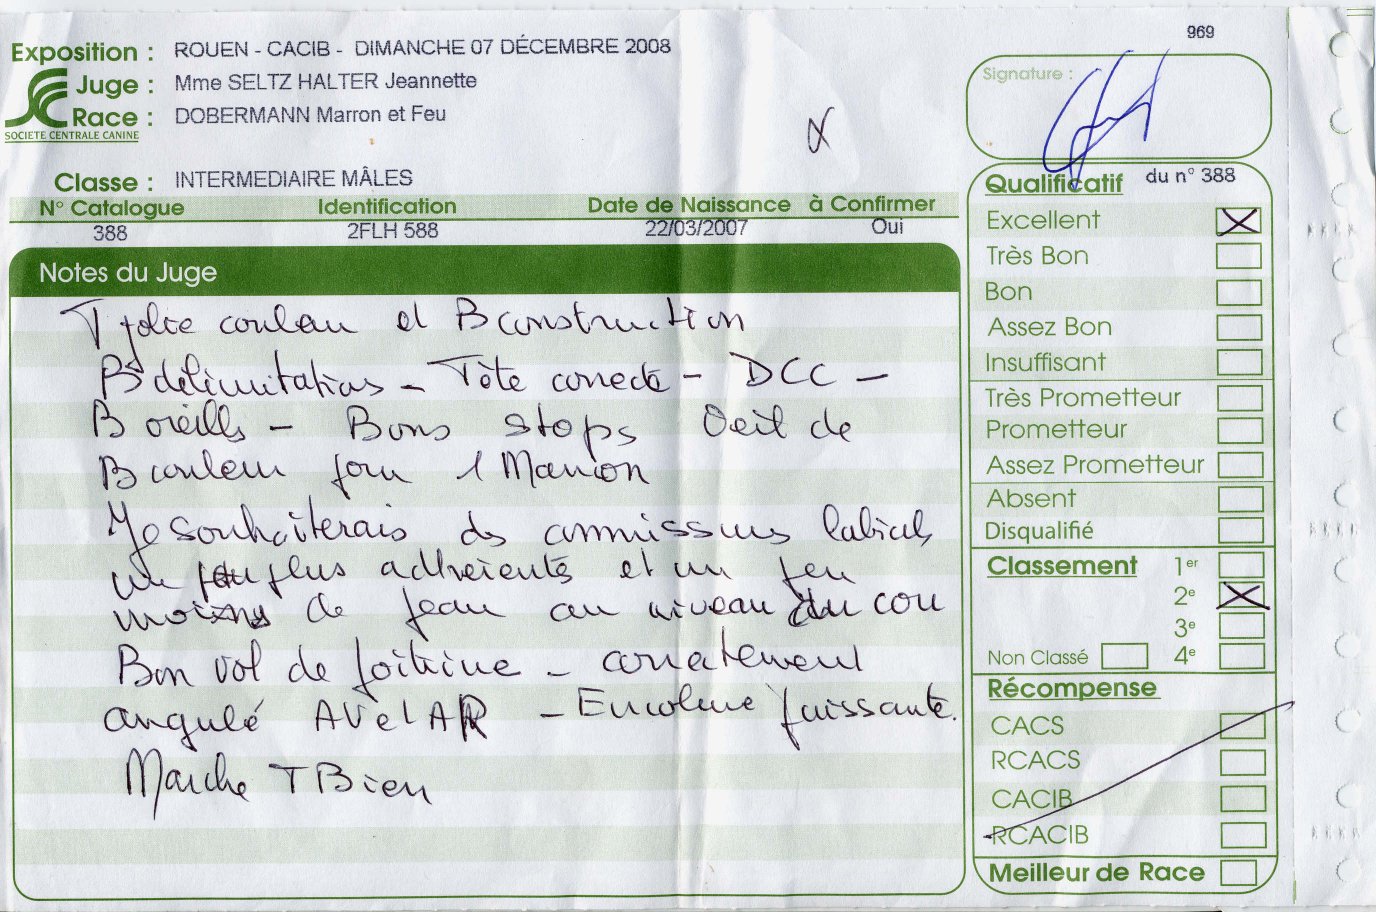 969
Exposition : ROUEN - CACIB - DIMANCHE 07 DÉCEMBRE 2008
Juge : Mme SELTZ HALTER Jeannette
Race : DOBERMANN Marron et Feu
SOCIETE CENTRALE CANINE
Classe : INTERMEDIAIRE MÂLES
N° Catalogue Identification Date de Naissance à Confirmer
388 2FLH 588 22/03/2007 Oui
Notes du Juge
T jolie couleur et B construction
B délimitations - Tête correcte - DCC -
B oreilles - Bons stops Oeil de
B couleur pour 1 Marron
Je souhaiterais des commissures labiales
un peu plus adhérentes et un peu
moins de peau au niveau du cou
Bon vol de poitrine - correctement
angulé AV et AR - Encolure puissante.
Marche T Bien
Signature :
Qualificatif du n° 388
Excellent
Très Bon
Bon
Assez Bon
Insuffisant
Très Prometteur
Prometteur
Assez Prometteur
Absent
Disqualifié
Classement 1er
2e
3e
Non Classé 4e
Récompense
CACS
RCACS
CACIB
RCACIB
Meilleur de Race